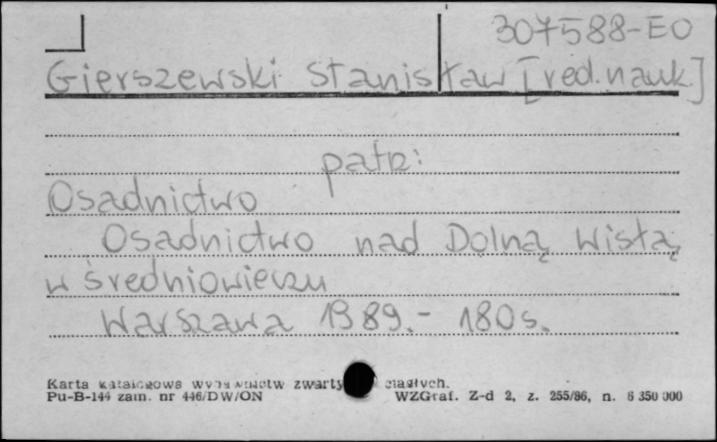 307588-EO
Gierszewski Stanisław [red.nauk]
patrz:
Osadnictwo
Osadnictwo nad Dolną Wisłą
w średniowieczu
Warszawa 1989.- 180s.
Karta katalogowa wydawnictw zwarty ciągłych.
Pu-B-144 zam. nr 446/DW/ON WZGraf. Z-d 2, z. 255/86, n. 6 350 000